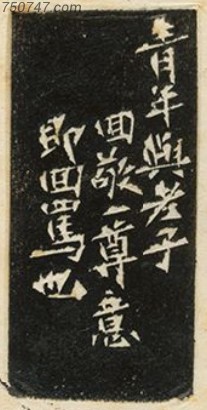 750747.com
青年與老子
回敬一尊意
即回罵也